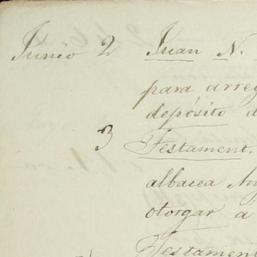 Junio 2 Juan N.
para arreg
depósito d
3 Testament.
albacea An
otorgar a
Testament